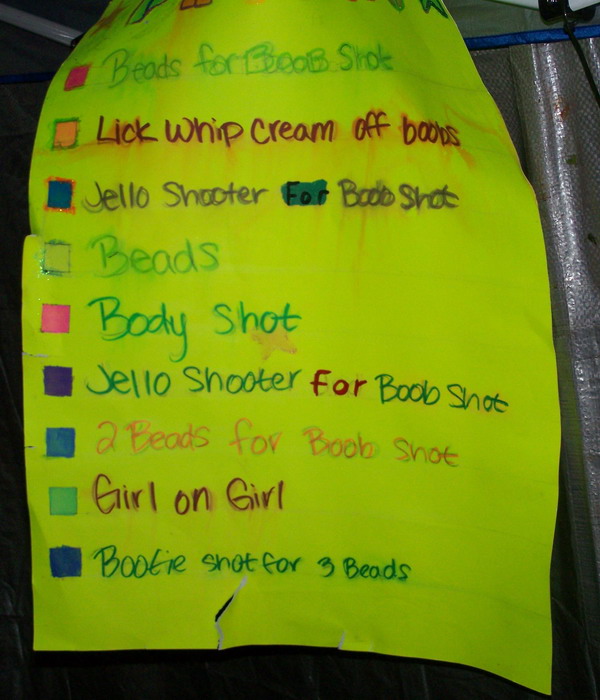 Beads for Boob Shot
Lick Whip Cream off boobs
Jello Shooter For Boob Shot
Beads
Body Shot
Jello Shooter For Boob Shot
2 Beads for Boob Shot
Girl on Girl
Bootie shot for 3 Beads